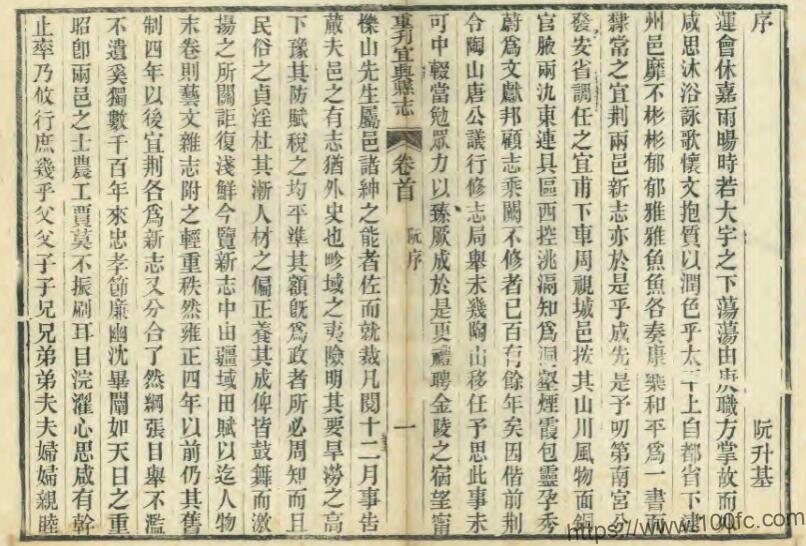 序 阮升基
運會休嘉雨暘時若大宇之下蕩蕩由庚職方掌故而
咸思沐浴詠歌懷文抱質以潤色乎太平上自都省下逮
州邑靡不彬彬郁郁雅雅魚魚各奏康樂和平爲一書而
隸常之宜荆兩邑新志亦於是乎成先是予叨第南宮分
發安省調任之宜甫下車周視城邑按其山川風物面銅
官腋兩氿東連具區西控洮滆知爲洞壑煙霞包靈孕秀
蔚爲文獻邦顧志乘闕不修者已百有餘年矣因偕前荆
令陶山唐公議行修志局舉未幾陶山移任予思此事未
可中輟當勉眾力以臻厥成於是更禮聘金陵之宿望甯
重刊宜興縣志 卷首 阮序 一
櫟山先生屬邑諸紳之能者佐而就裁凡閱十二月事告
蕆夫邑之有志猶外史也畛域之夷險明其要旱澇之高
下豫其防賦稅之均平準其額旣爲政者所必周知而且
民俗之貞淫杜其漸人材之偏正養其成俾皆鼓舞而激
揚之所關詎復淺鮮今覽新志中由疆域田賦以迄人物
末卷則藝文雜志附之輕重秩然雍正四年以前仍其舊
制四年以後宜荆各爲新志又分合了然綱張目舉不濫
不遺奚獨數千百年來忠孝節廉幽沈畢闡如天日之重
昭卽兩邑之士農工賈莫不振刷耳目浣濯心思咸有幹
止率乃攸行庶幾乎父父子子兄兄弟弟夫夫婦婦親睦
https://www.100fc.com